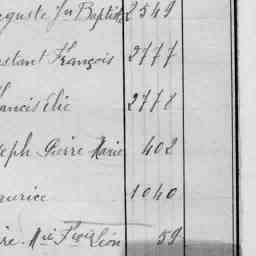 guste Jn Baptiste 2549
stant François 2777
ancis Élie 2778
seph Pierre Marie 402
aurice 1040
re. Mie Fçois Léon 59